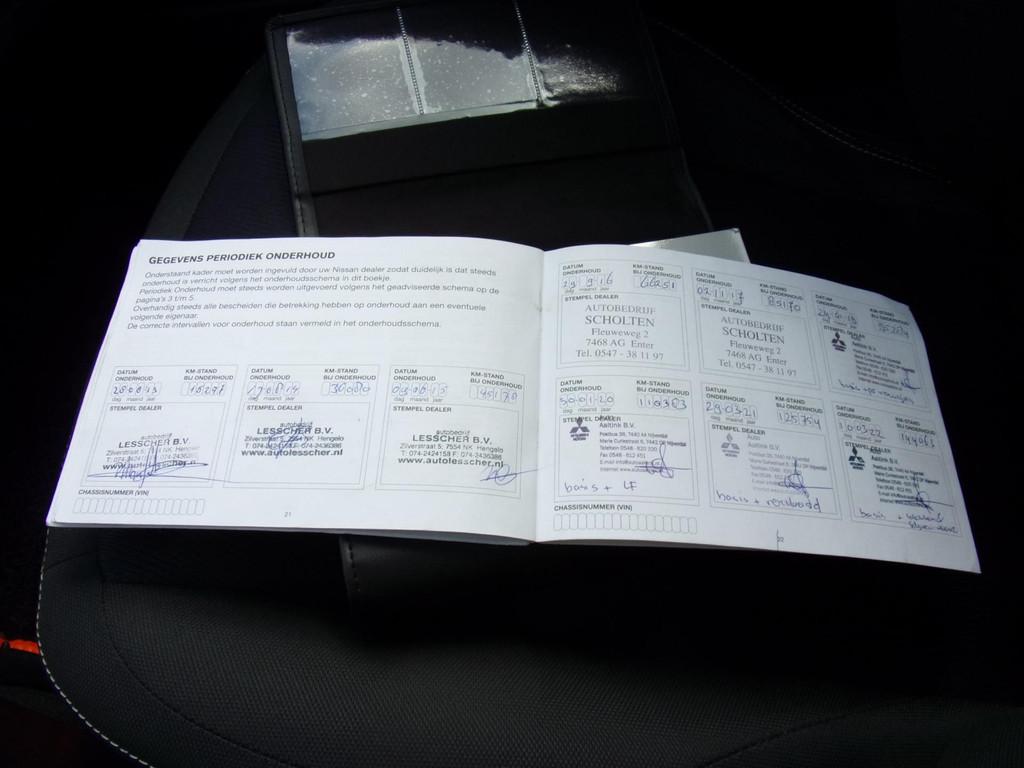 GEGEVENS PERIODIEK ONDERHOUD
Onderstaand kader moet worden ingevuld door uw Nissan dealer zodat duidelijk is dat steeds
onderhoud is verricht volgens het onderhoudsschema in dit boekje.
Periodiek Onderhoud moet steeds worden uitgevoerd volgens het geadviseerde schema op de
pagina's 3 t/m 5.
Overhandig steeds alle bescheiden die betrekking hebben op onderhoud aan een eventuele
volgende eigenaar.
De correcte intervallen voor onderhoud staan vermeld in het onderhoudsschema.
DATUM ONDERHOUD
KM-STAND BIJ ONDERHOUD
dag maand jaar
STEMPEL DEALER
autobedrijf
LESSCHER B.V.
Zilverstraat 5, 7554 NK Hengelo
T: 074-2424158 F: 074-2436386
www.autolesscher.nl
DATUM ONDERHOUD
KM-STAND BIJ ONDERHOUD
dag maand jaar
STEMPEL DEALER
autobedrijf
LESSCHER B.V.
Zilverstraat 5, 7554 NK Hengelo
T: 074-2424158 F: 074-2436386
www.autolesscher.nl
DATUM ONDERHOUD
KM-STAND BIJ ONDERHOUD
dag maand jaar
STEMPEL DEALER
autobedrijf
LESSCHER B.V.
Zilverstraat 5, 7554 NK Hengelo
T: 074-2424158 F: 074-2436386
www.autolesscher.nl
CHASSISNUMMER (VIN)
21
DATUM ONDERHOUD
KM-STAND BIJ ONDERHOUD
29 9 16
66251
dag maand jaar
STEMPEL DEALER
AUTOBEDRIJF
SCHOLTEN
Fleuweweg 2
7468 AG Enter
Tel. 0547 - 38 11 97
DATUM ONDERHOUD
KM-STAND BIJ ONDERHOUD
02 11 17
85170
dag maand jaar
STEMPEL DEALER
AUTOBEDRIJF
SCHOLTEN
Fleuweweg 2
7468 AG Enter
Tel. 0547 - 38 11 97
DATUM ONDERHOUD
KM-STAND BIJ ONDERHOUD
dag maand jaar
STEMPEL DEALER
Aaltink B.V.
DATUM ONDERHOUD
KM-STAND BIJ ONDERHOUD
30 01 20
110363
dag maand jaar
STEMPEL DEALER
Auto
Aaltink B.V.
Postbus 38, 7440 AA Nijverdal
Telefoon 0548 - 620 330
Fax 0548 - 612 451
basis + LF
DATUM ONDERHOUD
KM-STAND BIJ ONDERHOUD
29 03 21
125754
dag maand jaar
STEMPEL DEALER
Auto
Aaltink B.V.
basis + remvloeistof
DATUM ONDERHOUD
KM-STAND BIJ ONDERHOUD
10 03 22
144063
dag maand jaar
STEMPEL DEALER
Aaltink B.V.
basis +
CHASSISNUMMER (VIN)
22